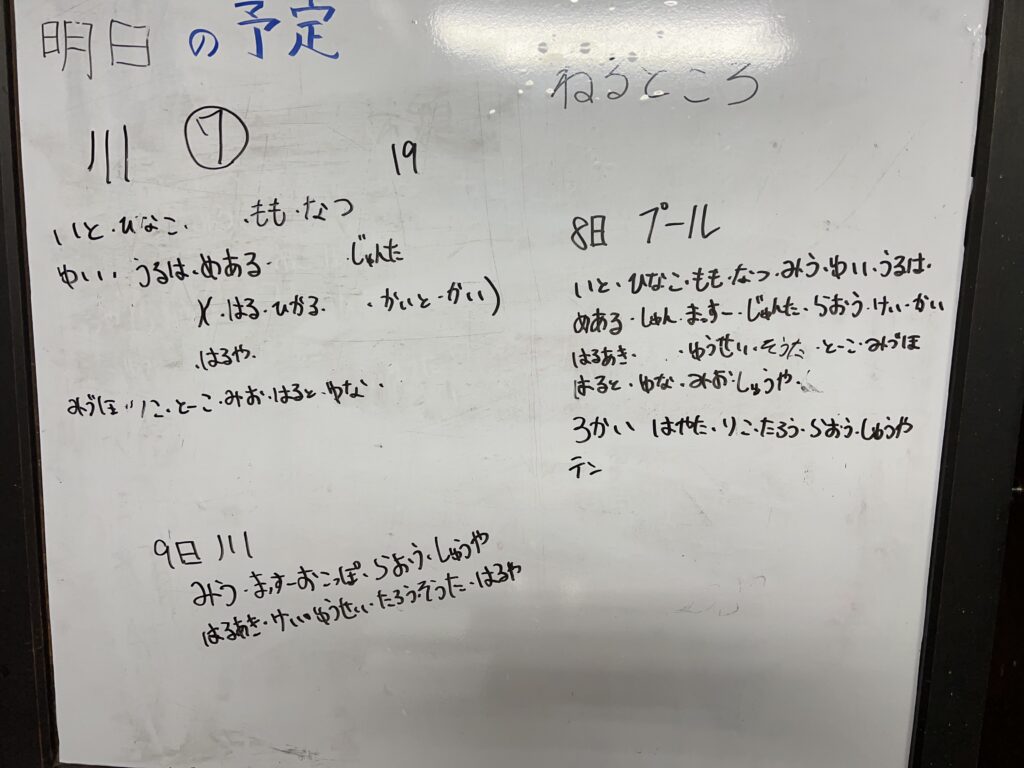 明日の予定
ねるところ
川 ⑦ 19
いと・ひなこ・ ・もも・なつ
ゆいい・うるは・めある・ じゅんた
・はる・ひかる・ ・かいと・かい)
・はるや・
みづほ・りこ・とーこ・みお・はると・ゆな・
8日 プール
いと・ひなこ・もも・なつ・みう・ゆいい・うるは・
めある・しゅん・まっすー・じゅんた・らおう・けいい・かい
はるあき・ ・ゆうせいい・そうた・とーこ・みづほ
はると・ゆな・みお・しゅうや・
3かい はやた・りこ・たろう・らおう・しゅうや
テン
9日 川
みう・まっすー・おこっぽ・らおう・しゅうや
はるあき・けいい・ゆうせいい・たろう・そうた・はるや